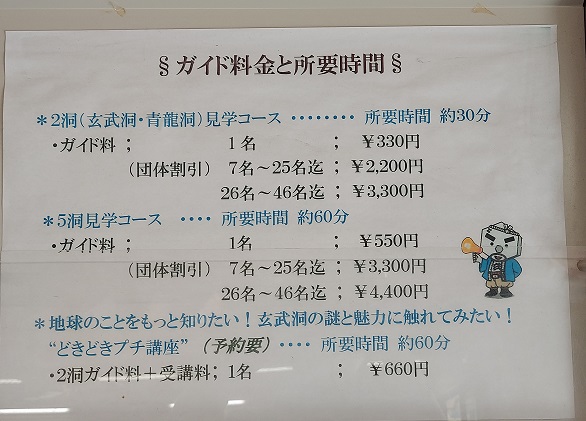 §ガイド料金と所要時間§
＊2洞（玄武洞・青龍洞）見学コース ‥‥‥‥ 所要時間 約30分
・ガイド料 ; 1名 ; ￥330円
（団体割引） 7名～25名迄 ; ￥2,200円
26名～46名迄 ; ￥3,300円
＊5洞見学コース ‥‥ 所要時間 約60分
・ガイド料 ; 1名 ; ￥550円
（団体割引） 7名～25名迄 ; ￥3,300円
26名～46名迄 ; ￥4,400円
＊地球のことをもっと知りたい！玄武洞の謎と魅力に触れてみたい！
“どきどきプチ講座”（予約要）‥‥ 所要時間 約60分
・2洞ガイド料＋受講料; 1名 ; ￥660円